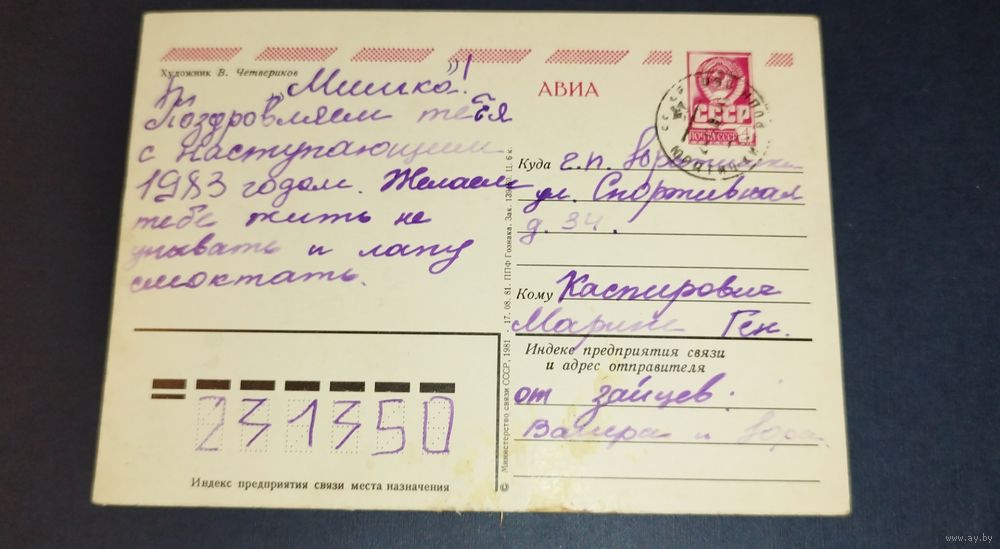 Художник В. Четвериков
„Мишка"!
Поздравляем тебя
с Наступающим
1983 годом. Желаем
тебе жить не
унывать и лапу
смоктать.
АВИА
СССР
ПОЧТА СССР
4
Куда г.п. Юратишки
ул. Спортивная
д. 34.
Кому Каспирович
Марине Ген.
Индекс предприятия связи
и адрес отправителя
от зайцев.
Валера и Юра
231350
Индекс предприятия связи места назначения
© Министерство связи СССР, 1981 - 17. 08. 81. ППФ Гознака. Зак. 6 к.
www.ay.by